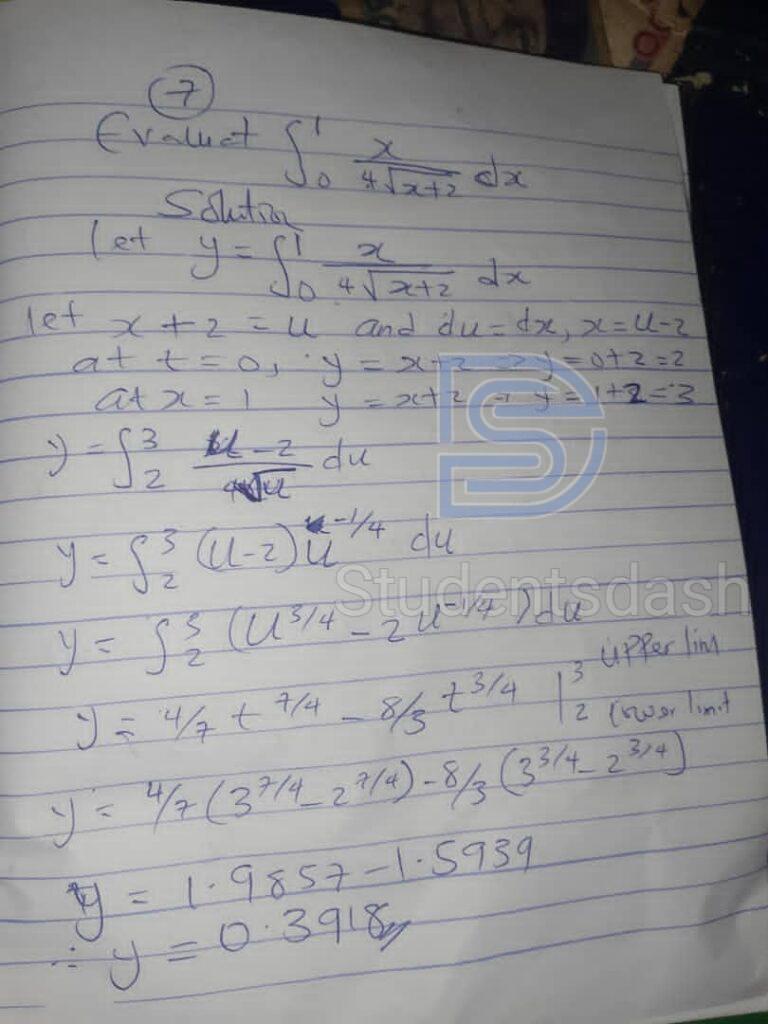 7
Evaluat ∫₀¹ x/⁴√x+2 dx
Solution
let y = ∫₀¹ x/⁴√x+2 dx
let x + 2 = u and du = dx, x = u-2
at t = 0, y = x+2 → y = 0+2 = 2
at x = 1 y = x+2 → y = 1+2 = 3
y = ∫₂³ u-2/⁴√u du
y = ∫₂³ (u-2)u^-1/4 du
Studentsdash
y = ∫₂³ (u^3/4 - 2u^-1/4)du
y = 4/7 t^7/4 - 8/3 t^3/4 |₂³ upper lim lower limit
y = 4/7 (3^7/4 - 2^7/4) - 8/3 (3^3/4 - 2^3/4)
y = 1.9857 - 1.5939
∴ y = 0.3918